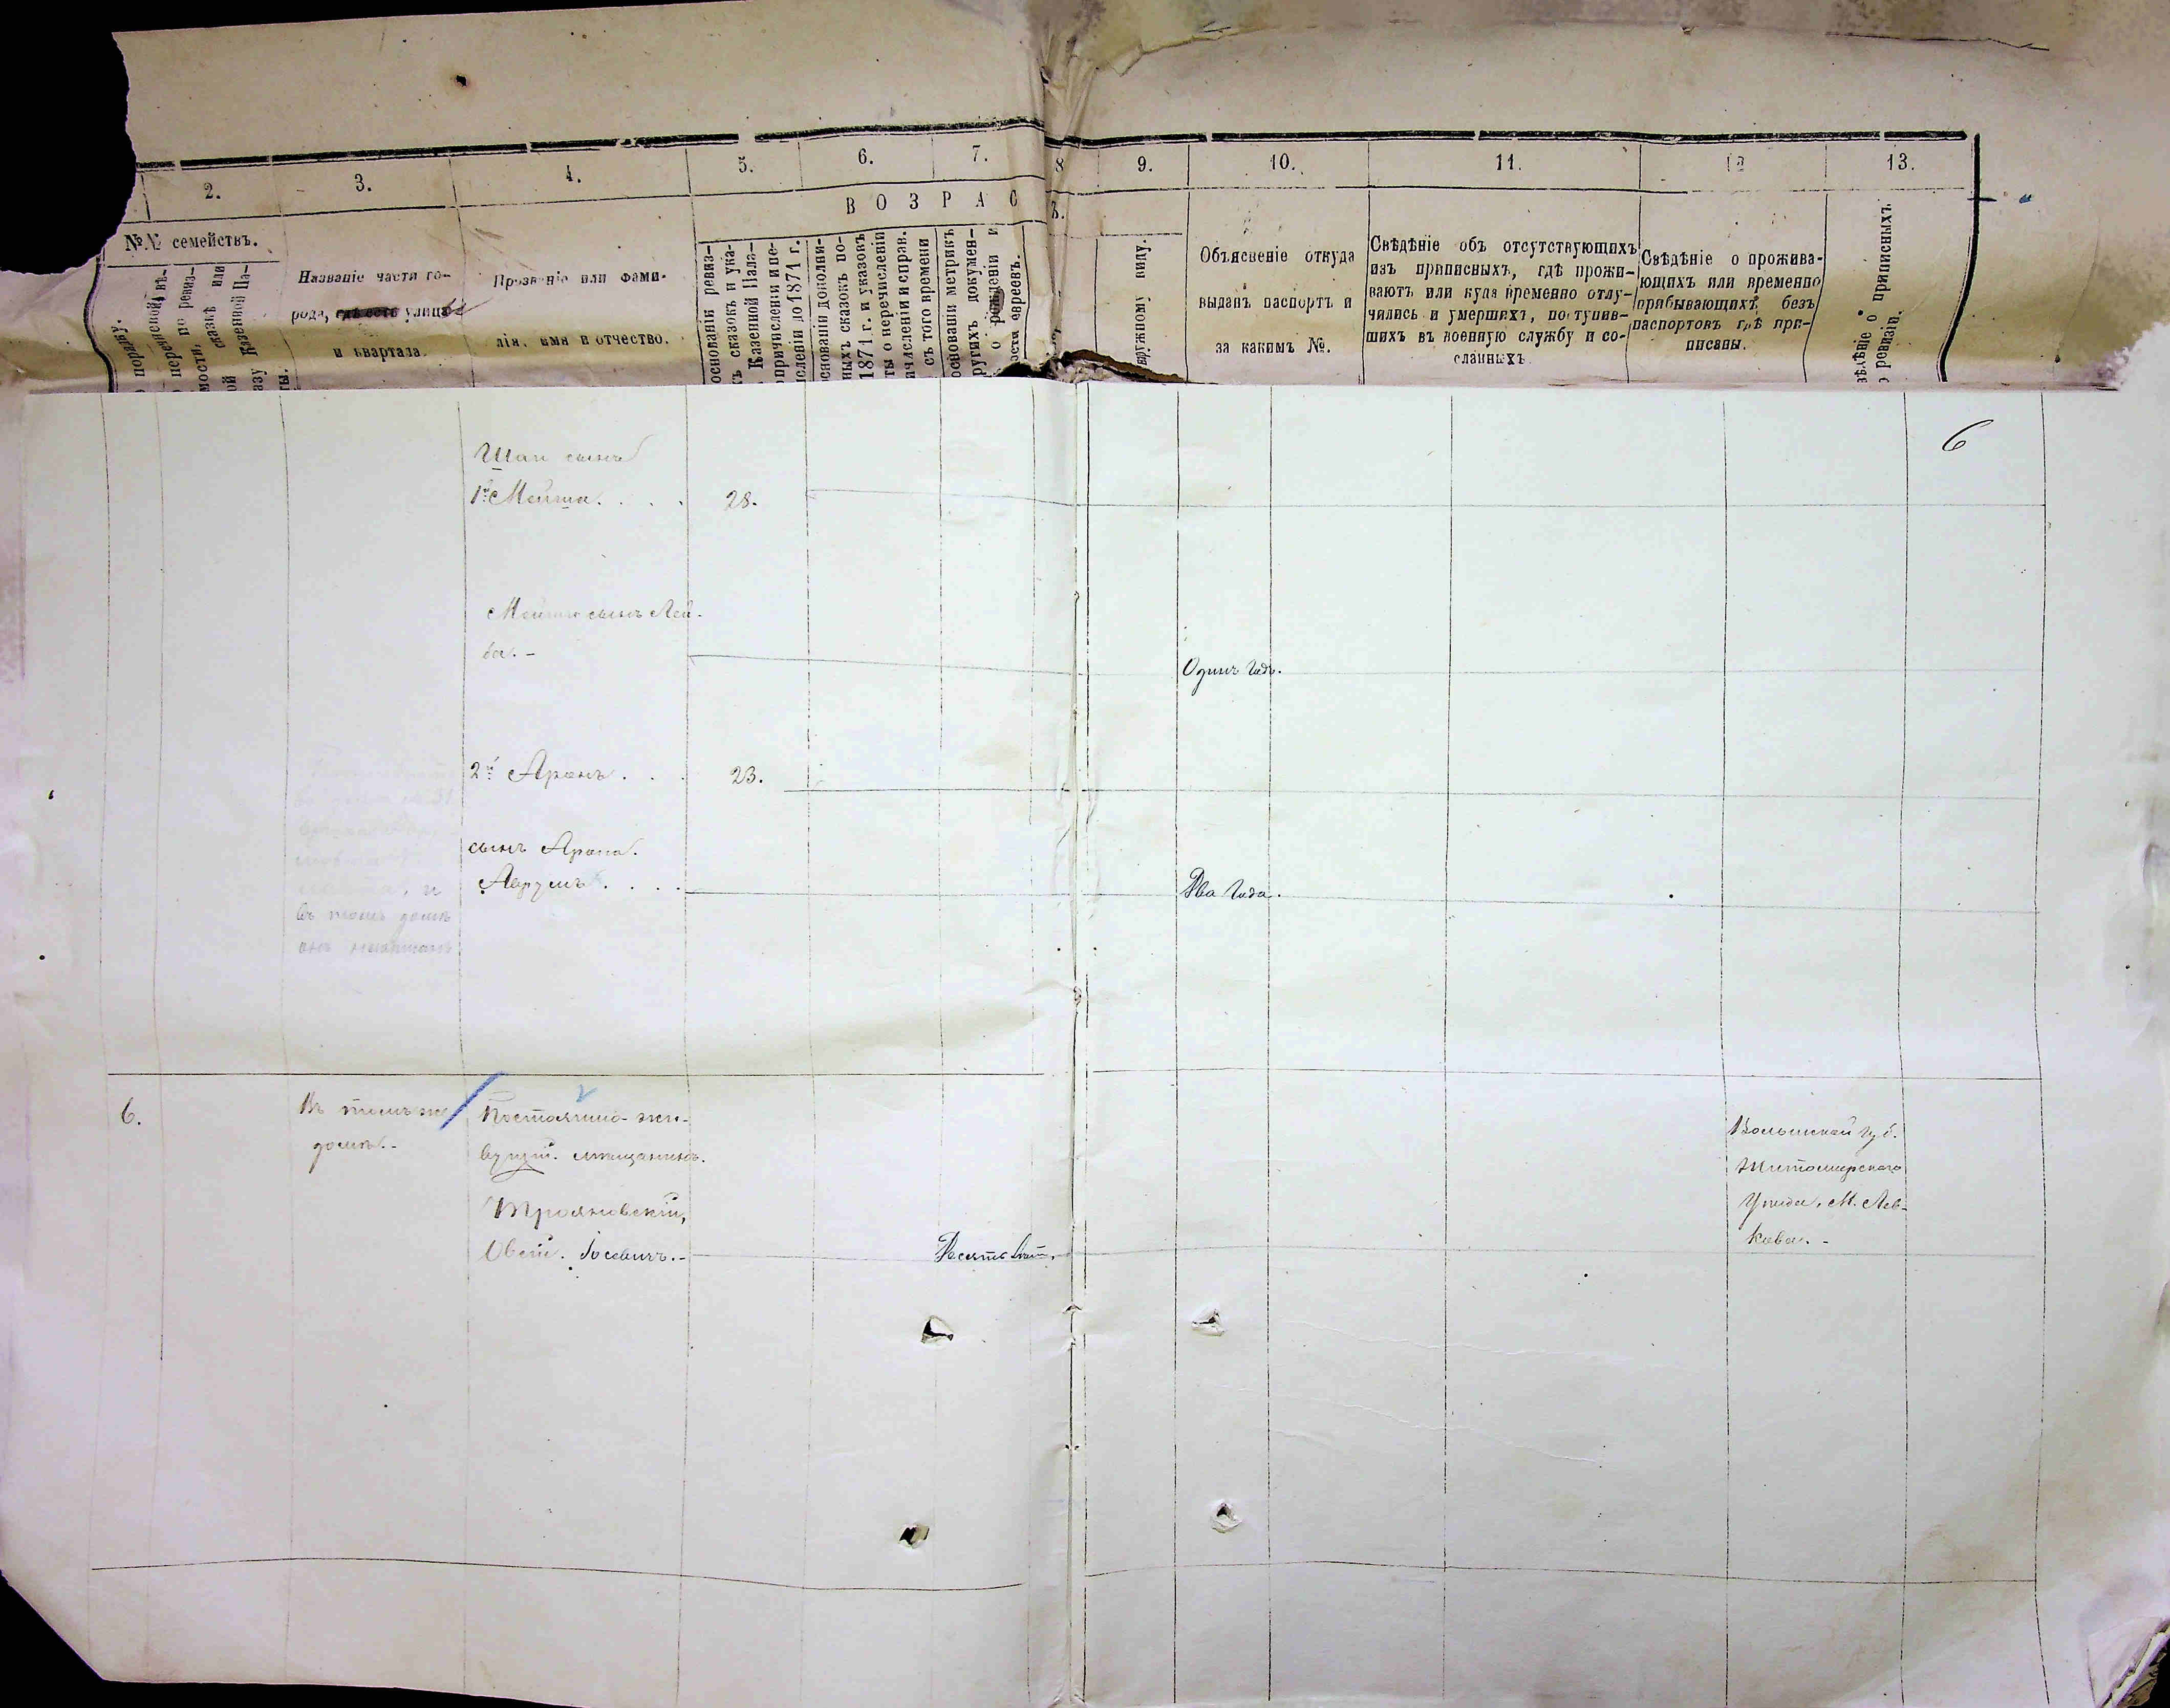 2.
3.
4.
5.
6.
7.
8
9.
10.
11.
12
13.
ВОЗРАС
№№ семействъ.
порядку.
сказкѣ или
Казенной Па-
Названіе части го-
рода, улица
и квартала.
Прозваніе или фами-
лія, имя и отчество.
основаніи ревиз-
сказокъ и ука-
Казенной Пала-
причисленіи и пе-
до 1871 г.
основаніи дополни-
ныхъ сказокъ по-
1871 г. и указовъ
ты о перечисленіи
съ того времени
основаніи метрикъ
другихъ докумен-
о рожденіи и
евреевъ.
наружному виду.
Объясненіе откуда
выданъ паспортъ и
за какимъ №.
Свѣдѣніе объ отсутствующихъ
изъ приписныхъ, гдѣ прожи-
ваютъ или куда временно отлу-
чились и умершихъ, поступив-
шихъ въ военную службу и со-
сланныхъ
Свѣдѣніе о прожива-
ющихъ или временно
прибывающихъ безъ
паспортовъ гдѣ при-
писаны.
о приписныхъ
ревизіи.
6
сынъ
1й Мейша. . . .
28.
Мейши сынъ Лей-
ба. -
Одинъ годъ.
2й Аронъ. . .
23.
сынъ Арона.
Аврумъ. . . .
Два года.
въ томъ домѣ
6.
Въ томъ же
домѣ. -
Постоянно жи-
вущій. мещанинъ.
Трояновскій,
Іосевичъ. -
Десять лѣт.
Волынской губ.
Житомирскаго
Уѣзда, М. Лев-
кова. -